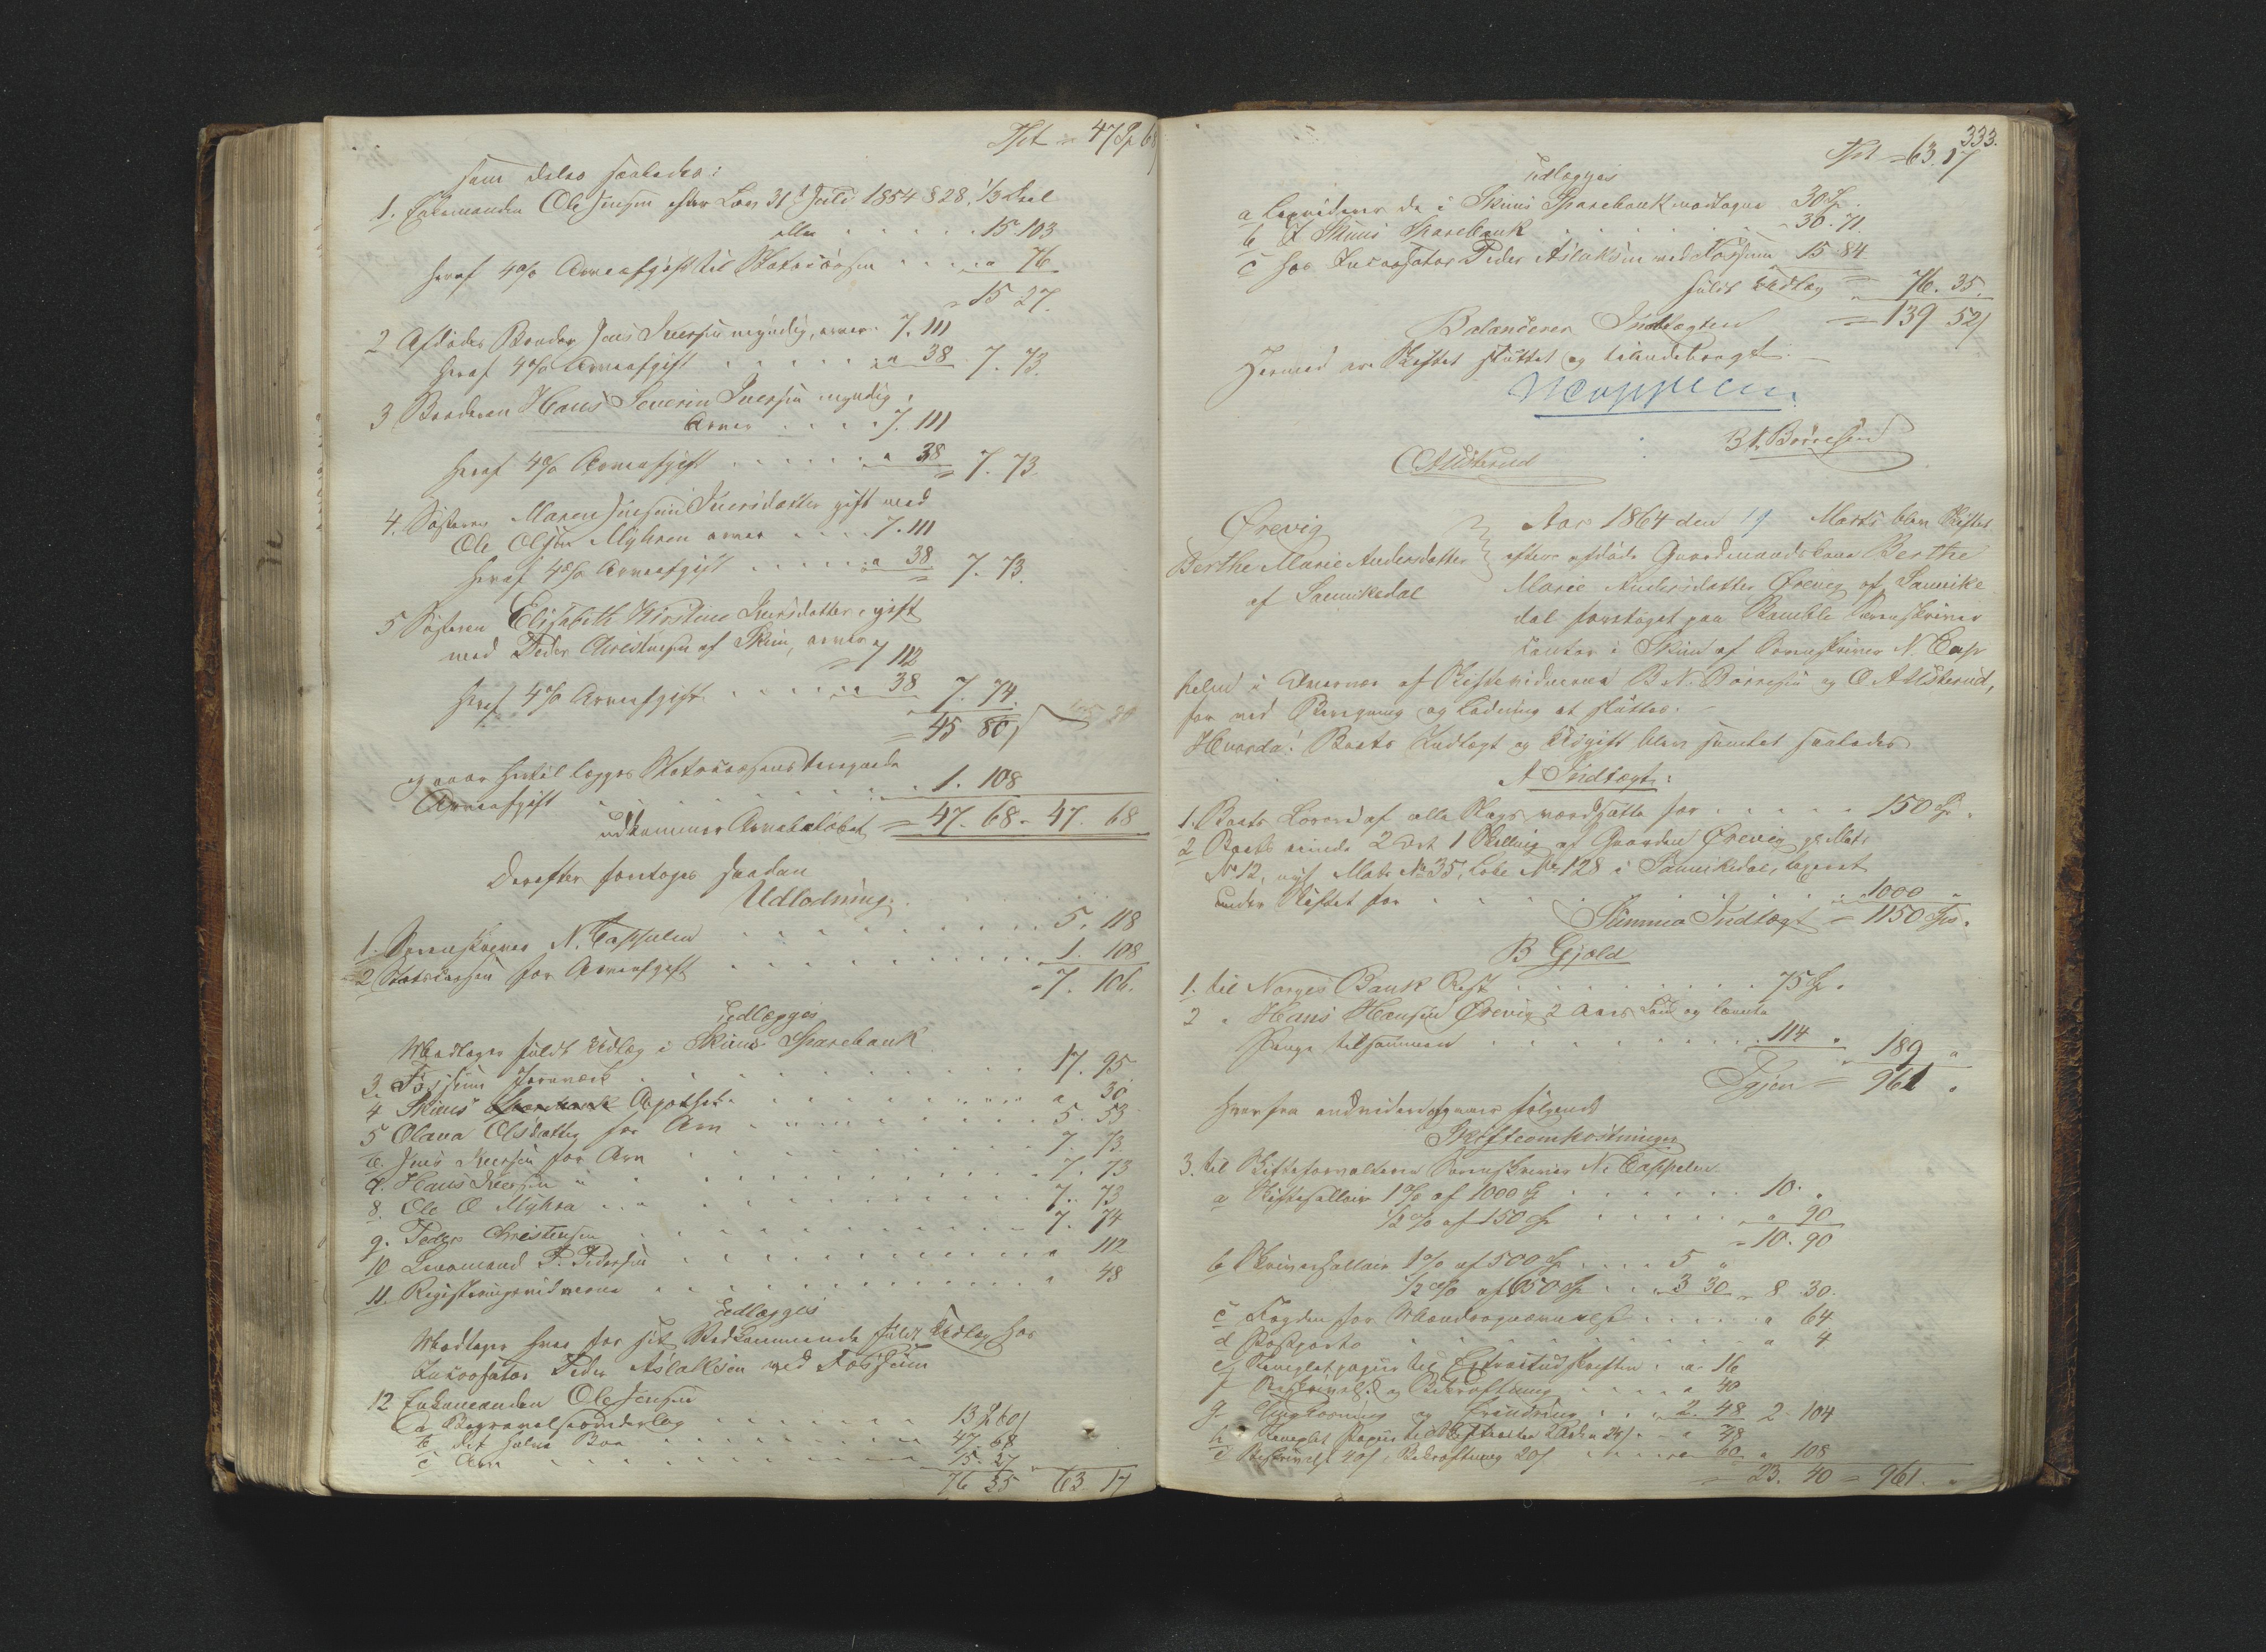 Tsrt = 47 Sp 68
som deles saaledes:
1. Enkemanden Ole Jensen efter Lov 31 Juli 1854 § 28, 1/3 Deel
eller . . . . . 15. 103
heraf 4% Arveafgift til Statscassen . . . . „ 76
= 15 27.
2 Afdødes Broder Jens Iversen myndig, arver 7. 111
heraf 4% Arveafgift . . . . . „ 38 7. 73.
3 Broderen Hans Severin Iversen myndig,
Arver . . . . 7. 111
heraf 4% Arveafgift . . . . . „ 38 = 7. 73.
4. Søsteren Maren Iversdatter gift med
Ole Olsen Myhren arver . . . . 7. 111
heraf 4% Arveafgift . . . . . „ 38 = 7. 73.
5 Søsteren Elisabeth Kirstine Iversdatter, gift
med Peder Christensen af Skien, arver
= 7 112
heraf 4% Arveafgift . . . . . „ 38 7. 74.
= 45 80
og naar hertil lægges Statscassens beregnede
Arveafgift . . . . . . . 1. 108
udkommer Arvebeløbet = 47. 68 = 47. 68
Derefter foretoges saadan
Udlodning:
1. Sorenskriver N. Cappelen . . . . . 5. 118
2 Statscassen for Arveafgift . . . . . 1. 108
= 7. 106.
Udlægges
Modtager fuldt Udlæg i Skiens Sparebank
3. Fossum Jernværk . . . . . 17. 95
4 Skiens Apothek . . . . . „ 30
5 Olava Olsdatter for Arv . . . . . 5. 53
6. Jens Iversen for Arv . . . . . 7. 73
7. Hans Iversen „ . . . . . 7. 73
8. Ole O Myhra „ . . . . . 7. 73
9. Peder Christensen . . . . . 7. 74
10 Lensmand P. Pedersen . . . . . „ 112
11. Registeringsvidnerne . . . . . „ 48
Udlægges
Modtager hver for sit Vedkommende fuldt Udlæg hos
Incassator Peder Aslaksen ved Fossum
12 Enkemanden Ole Jensen
a Begravelses . . . . . 13 Sp 60
b det halve Boe . . . . . 47. 68
c Arv . . . . . 15. 27
76 35 63 17
333.
Tsrt = 63. 17
Udlægges
a Leverer de i Skiens Sparebank modtagne 30 Sp.
b I Skiens Sparebank . . . . . 30. 71.
c hos Incassator Peder Aslaksen ved Fossum 15 84
fuldt Udlæg = 76. 35.
Balancerer Indtægten = 139 52
Hermed er Skiftet sluttet og tilendebragt. —
NCappelen.
B N. Børresen
O A Ulsterud
Ørevig
Berthe Marie Andersdatter
af Sannikedal
Aar 1864 den 19 Marts blev Skiftet
efter afdøde Gaardmandskone Berthe
Marie Andersdatter Ørevig af Sannike
dal foretaget paa Bamble Sorenskriver
contor i Skien af Sorenskriver N. Cap
pelen i Overvær af Skiftevidnerne B N. Børresen og O A Ulsterud,
for ved Beregning og Lodning at sluttes. —
Hvorda! Boets Indtægt og Udgift blev samlet saaledes
A Indtægt:
1. Boets Løsøre af alle Slags værdsatte for . . . . . 150 Sp. „
2 Boets eiende 2 Ort 1 Skilling af Gaarden Ørevig gl Matr
No 12, nyt Matr No 35, Løbe No 128 i Sannikedal, taxeret
under Skiftet for . . . . . 1000 „
Summa Indtægt = 1150 Sp. „
B Gjæld
1. til Norges Bank Rest . . . . . 75 Sp. „
2 „ Hans Hansen Ørevig 2 Aars Løn og laante
Penge tilsammen . . . . . 114 „ = 189 „
Igjen = 961 „
hvorfra endvidere afgaaer følgende
Skifteomkostninger
3. til Skifteforvalteren Sorenskriver N. Cappelen
a Skiftesallair 1% af 1000 Sp . . . . . 10. „
1/2% af 150 Sp . . . . . „ 90
= 10. 90
b Skriversallair 1% af 500 Sp . . . . 5 „
1/2% af 650 Sp . . . 3 30 = 8 30.
c Fogden for Mændsopnævnelse . . . . . „ 64
d Postporto . . . . . „ 4
e Stemplet papiir til Extraktudskriften . „ 16
f Beskrivelse og Bekræftning . . . . „ 40
g. Tinglæsning og Erindring . . . 2. 48 2 104
h Stemplet Papiir til . . „ 48
i Beskrivelse 40 s, Bekræftning 20 s . . . „ 60 „ 108
= 23. 40 = 961. „